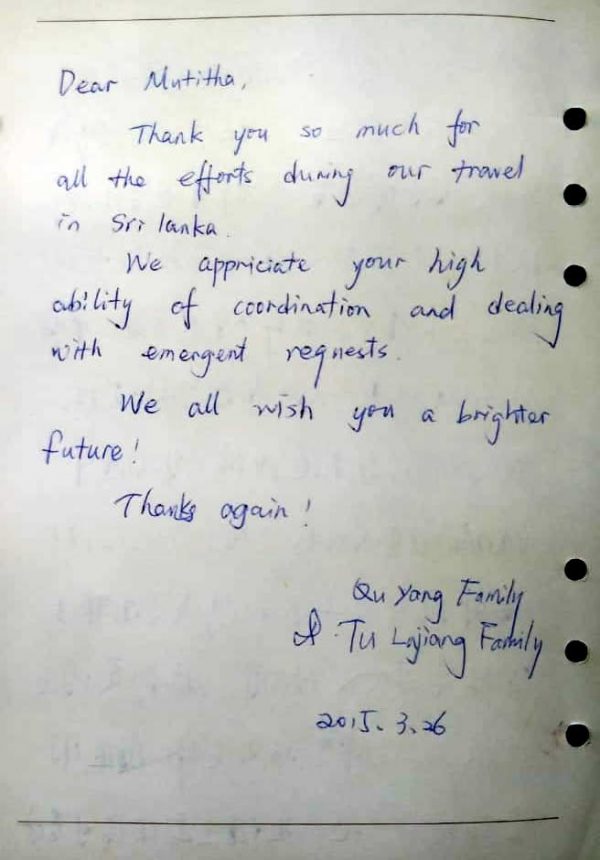 Dear Mutitha,
Thank you so much for
all the efforts during our travel
in Sri lanka.
We appriciate your high
ability of coordination and dealing
with emergent requests.
We all wish you a brighter
future!
Thanks again!
Qu Yang Family
& Tu Lajiang Family
2015.3.26